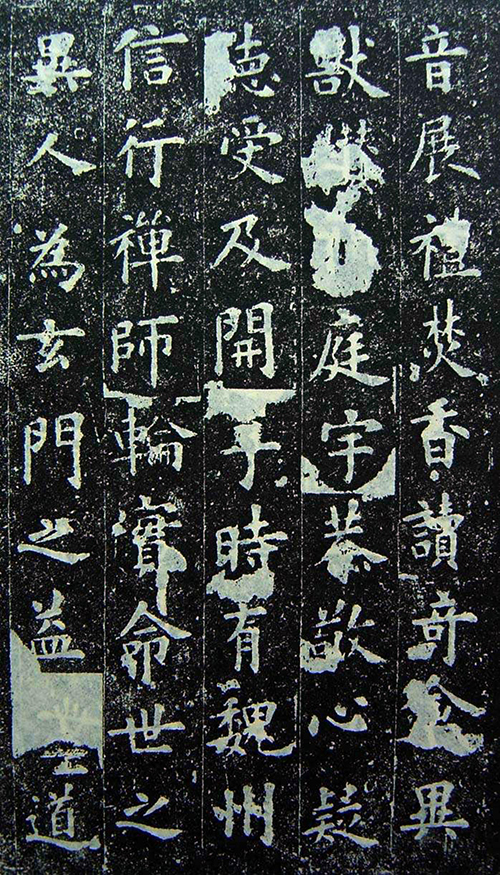 音展禮焚香讀奇禽異
獸庭宇恭敬心疑
聽受及開于時有魏州
信行禪師輪實命世之
異人為玄門之益道